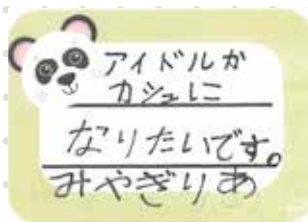 アイドルか
カシュに
なりたいです。
みやぎりあ